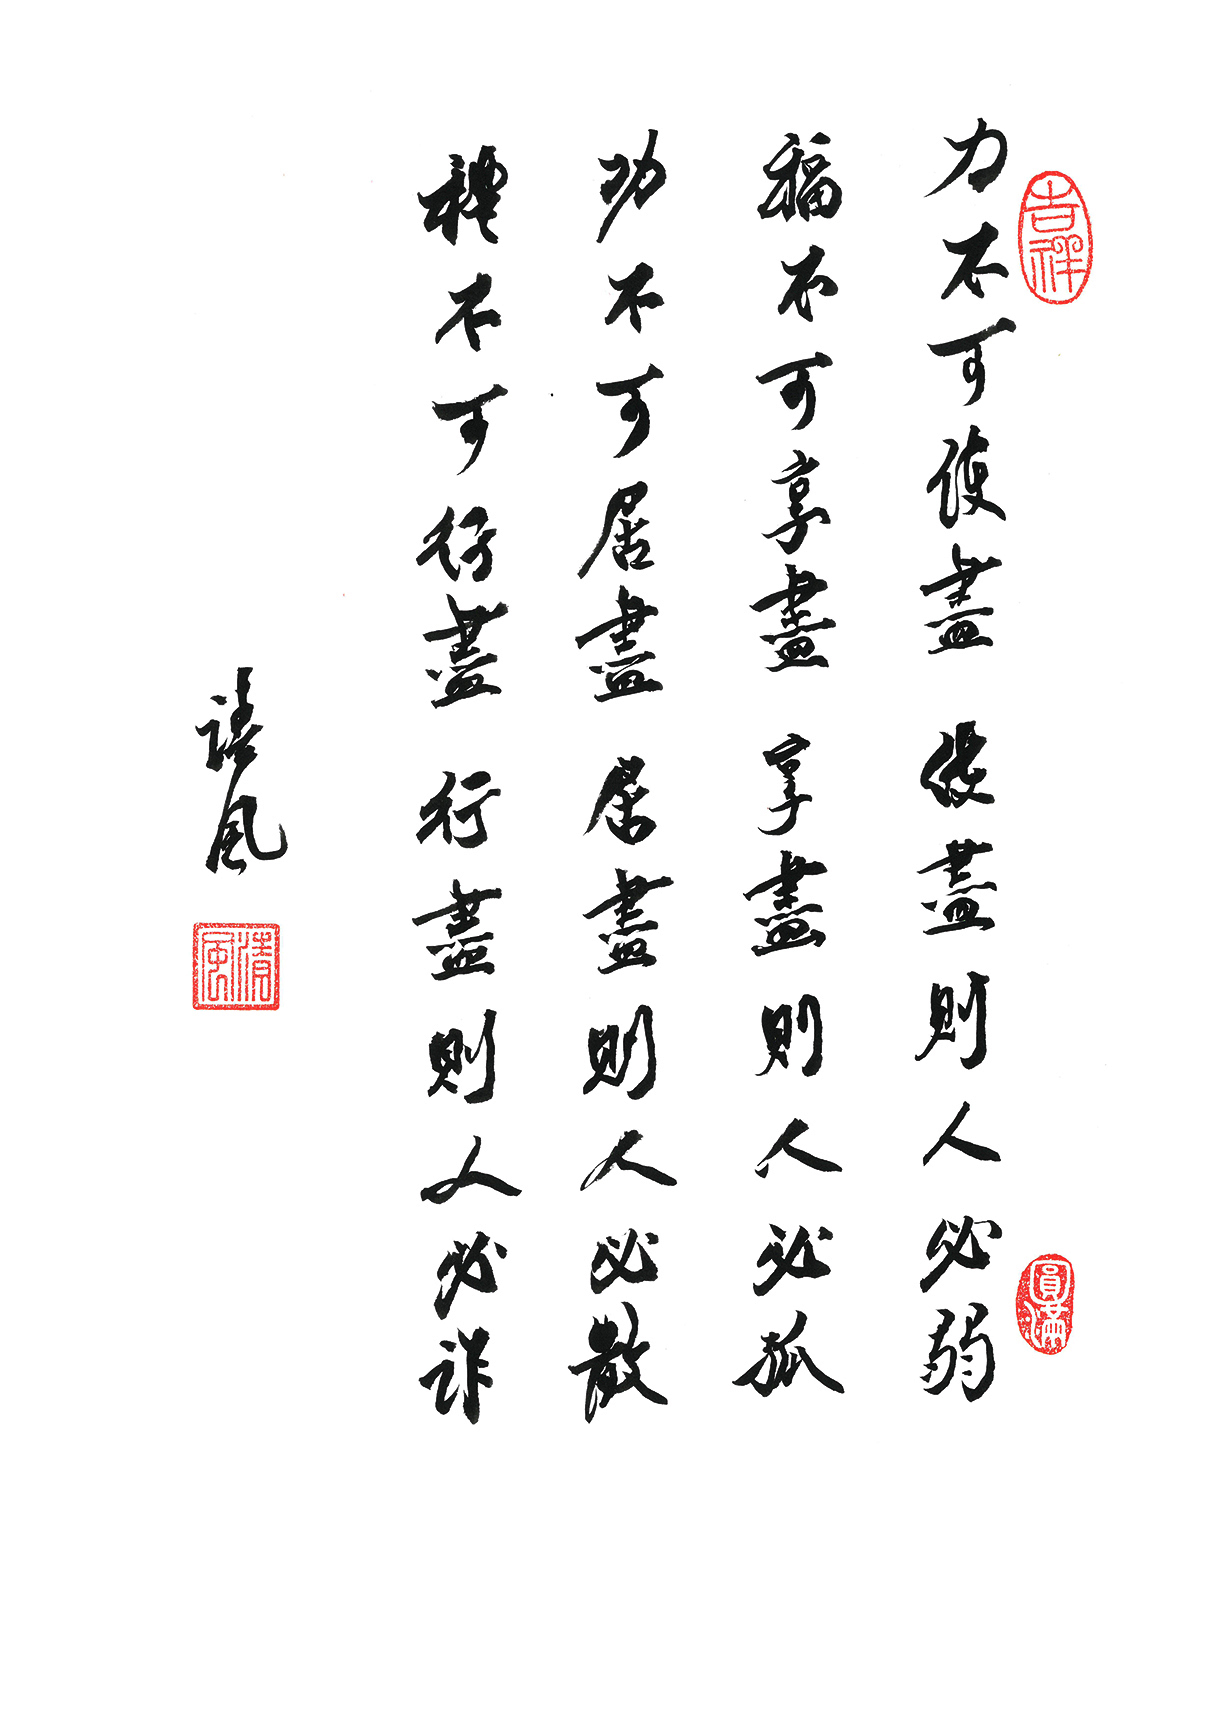 吉祥
力不可使盡 使盡則人必弱
福不可享盡 享盡則人必孤
功不可居盡 居盡則人必散
禮不可行盡 行盡則人必詐
清風
清風
圓滿